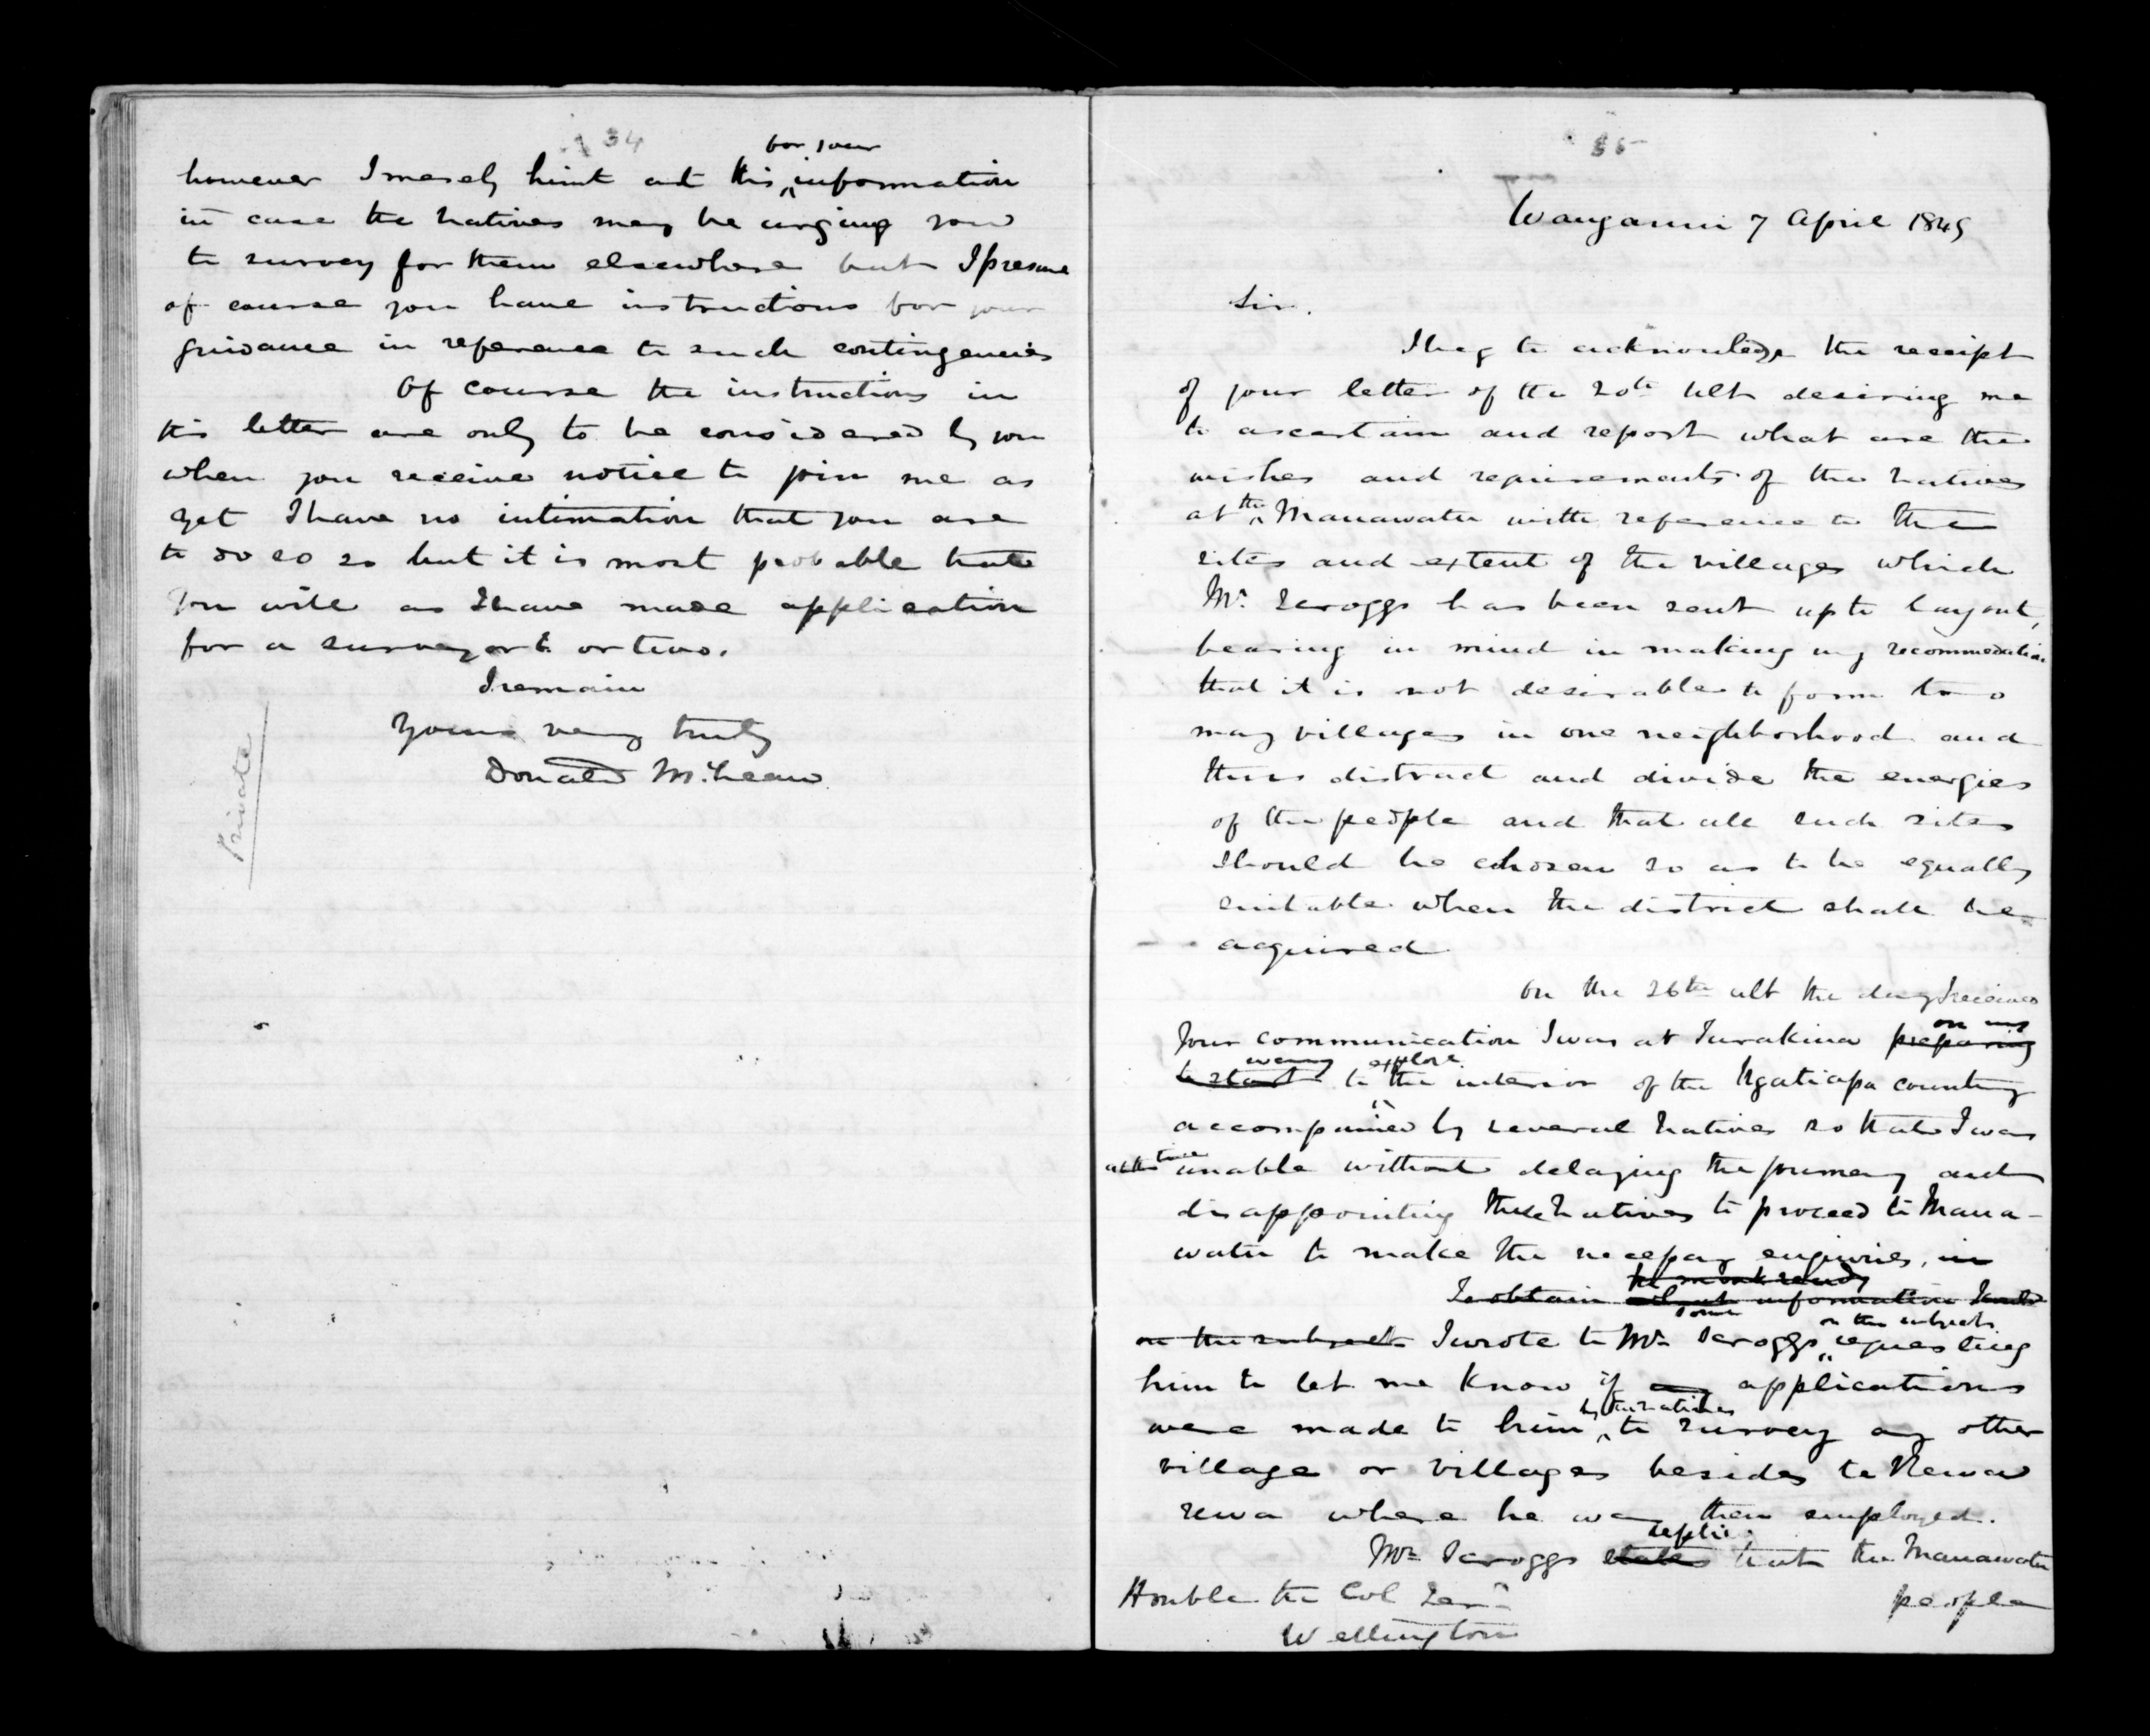 34
for your
however I merely hint at this ^ information
in case the natives may be urging you
to survey for them elsewhere but I presume
of course you have instructions for your
guidance in reference to such contingencies
Of course the instructions in
this letter are only to be considered by you
when you receive notice to join me as
yet I have no intimation that you are
to do so so but it is most probable that
you will as I have made application
for a surveyor or two.
I remain
Yours very truly
Donald McLean
Private
35
Wanganui 7 April 1849
Sir.
I beg to acknowledge the receipt
of your letter of the 20th Ult desiring me
to ascertain and report what are the
wishes and requirements of the natives
at the ^ Manawatu with reference to the
sites and extent of the villages which
Mr. Scroggs has been sent up to layout,
bearing in mind in making my recommendation
that it is not desirable to form too
many villages in one neighborhood and
thus distract and divide the energies
of the people and that all such sites
should be chosen so as to be equally
suitable when the district shall be
acquired
On the 26th ult the day I received
on my
Your communication I was at Turakina preparing
way explore
to start to ^ the interior of the Ngatiapa country
accompanied by several natives so that I was
at the time unable without delaying the journey and
disappointing these natives to proceed to Mana-
watu to make the necessary enquiries, in
To obtain information
on the subject
on the subject I wrote to Mr Scroggs ^ requesting
him to let me know if any applications
by the natives
were made to him ^ to survey any other
village or villages besides te Rewa
rewa where he was then employed.
replies
Mr Scroggs states that the Manawatu
people
Honble the Col Secy
Wellington